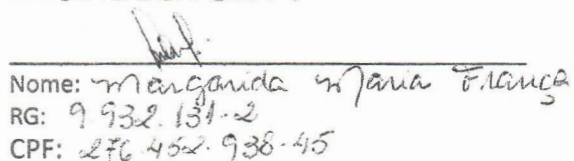 Nome: Margarida Maria França
RG: 9 932.131-2
CPF: 276.452.938-45